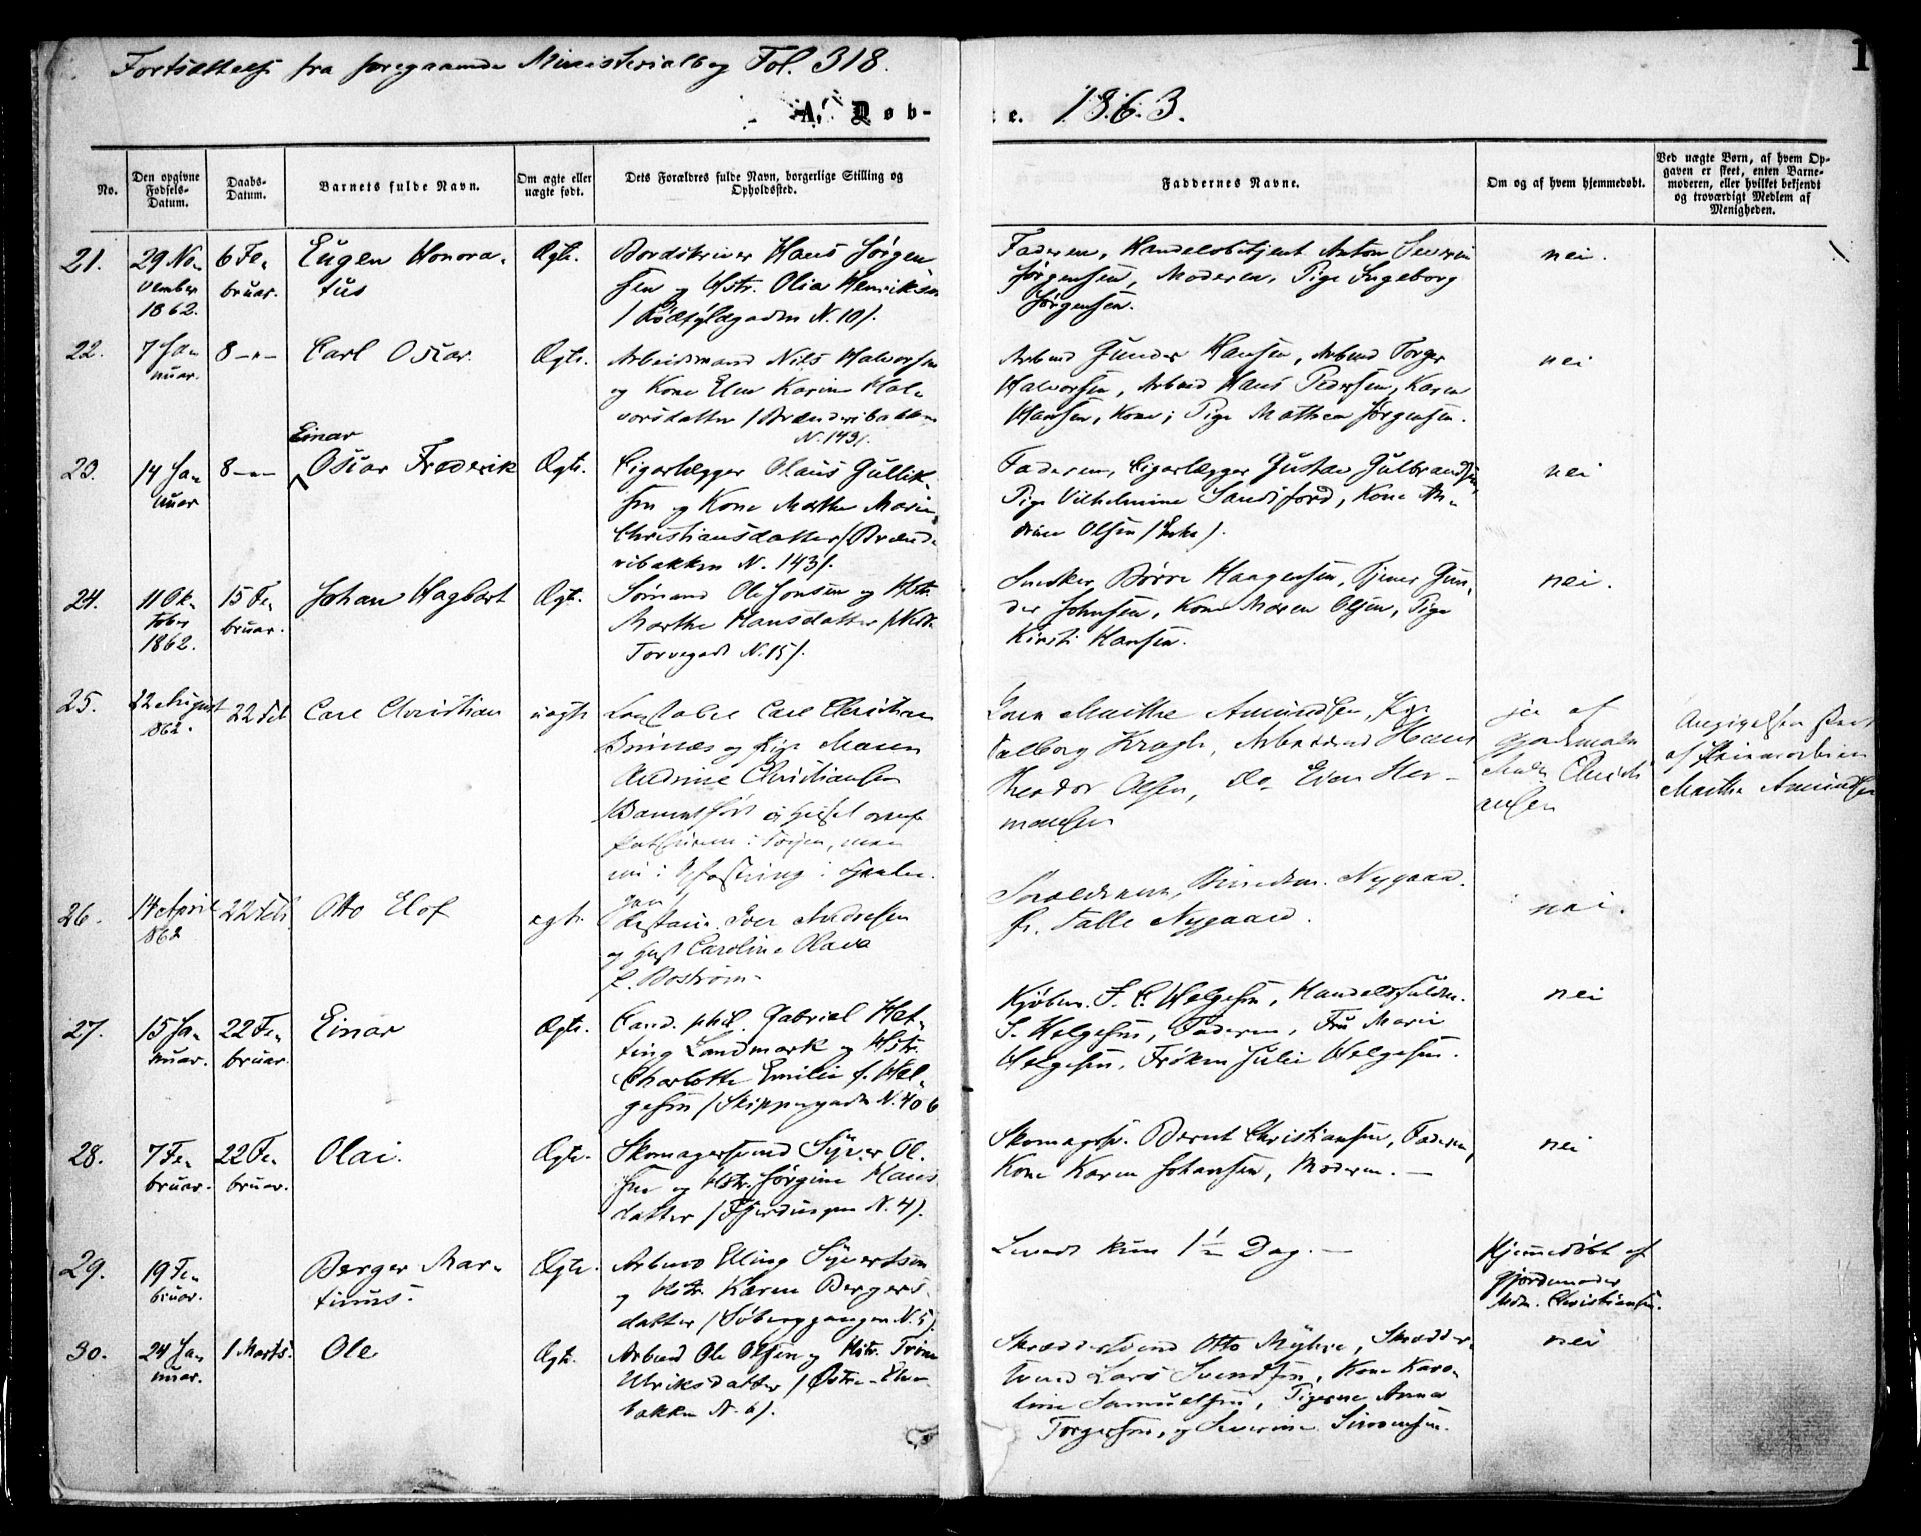 Fortsættelse fra foregaaende Ministerialbog Fol. 318.
1
A. Døb-
e. 1863.
No.
Den opgivne Fødsels-Datum.
Daabs-Datum.
Barnets fulde Navn.
Om ægte eller uægte født.
Dets Forældres fulde Navn, borgerlige Stilling og Opholdssted.
Faddernes Navne.
Om og af hvem hjemmedøbt.
Ved uægte Børn, af hvem Op-
gaven er skeet, enten Barne-
moderen, eller hvilket bekjendt
og troværdigt Medlem af
Menigheden.
21.
29 No-
vember
1862.
6 Fe-
bruar.
Eugen Honora-
tus
Ægte.
Bordskriver Hans Jørgen
sen og Hstr. Olia Henriksen
/Rødfyldgaden N. 10/.
Faderen, Handelsbetjent Anton Severin
Jørgensen, Moderen, Pige Ingeborg
Jørgensen.
nei.
22.
7 Ja-
nuar.
8 -"-
Carl Oscar.
Ægte.
Arbeidsmand Nils Halvorsen
og Kone Elen Karine Hal-
vorsdatter /Brænderibakken
N. 143/.
Arbmd Gunder Hansen, Arbmd Torger
Halvorsen, Arbmd Hans Pedersen, Karen
Hansen, Kone; Pige Mathea Jørgensen.
nei
23.
14 Ja-
nuar
8 -"-
Einar
Oscar Frederik
Ægte.
Cigarlægger Olaus Gullik-
sen og Kone Marthe Marie
Christiansdatter /Brænde
ribakken N. 143/.
Faderen, Cigarlægger Gustav Gulbrandsen,
Pige Vilhelmine Sandsfjord, Kone An-
drine Olsen /Enke/.
nei
24.
11 Ok-
tober
1862.
15 Fe-
bruar.
Johan Hagbart
Ægt.
Sømand Ole Jonsen og Hstr.
Marthe Hansdatter
Torvegade N. 15/.
Snedker Børre Haagensen, Tjener Gun-
der Johnsen, Kone Maren Olsen, Pige
Kirsti Hansen.
nei.
25.
22 August
1862.
22 Feb
Carl Christian
uægte
Carl Christian
og Pige Maren
Andrine Christiansen
Kone Marthe Amundsen, Pige
Valborg Kragh, Arbeidsmd Hans
Theodor Olsen, do Even Her-
mansen
ja af
Gjordemoder
Christi
ansen
Angivelsen skeet
af
Marthe Amundsen
26.
14 April
1862
22 Feb
Otto Elof
ægte
Iver Andresen
og Hust Caroline Olava
f. Boström.
Nygaard.
Fr. Talle Nygaard.
nei.
27.
15 Ja-
nuar.
22 Fe-
bruar.
Einar
Ægte.
Cand. phil. Gabriel Hat-
ting Landmark og Hstr.
Charlotte Emilie f. Hel-
gesen /Skippergaden N. 40 b
Kjøbm. F. C. Helgesen, Handelsfuldm.
S. Helgesen, Faderen, Fru Marie
Helgesen, Frøken Julie Helgesen.
nei
28.
7 Fe-
bruar.
22 Fe-
bruar.
Olai.
Ægte.
Skomagersvend Syver Ol-
sen og Hstr. Jørgine Hans
datter /Fjerdingen N. 4/.
Skomagersv. Bernt Christiansen, Faderen,
Kone Karen Johansen, Moderen. —
nei
29.
19 Fe-
bruar.
Berger Mar-
tinus.
Ægte.
Arbmd Elling Syvertsen
og Hstr. Karen Bergers-
datter /Søberggangen N. 5/.
Levede kun 1½ Dag. —
Hjemmedøbt af
Gjordemoder
Mdm. Christiansen.
30.
24 Ja
nuar.
1 Marts.
Ole
Ægte.
Arbmd Ole Olsen og Hstr. Trine
Ulriksdatter /Østre Elve
bakken N. 6/.
Skræddersvend Otto Myhre, Skrædder-
svend Lars Svendsen, Kone Karo-
line Samuelsen, Pigerne Anna
Torgersen, og Severine Simensen.
nei